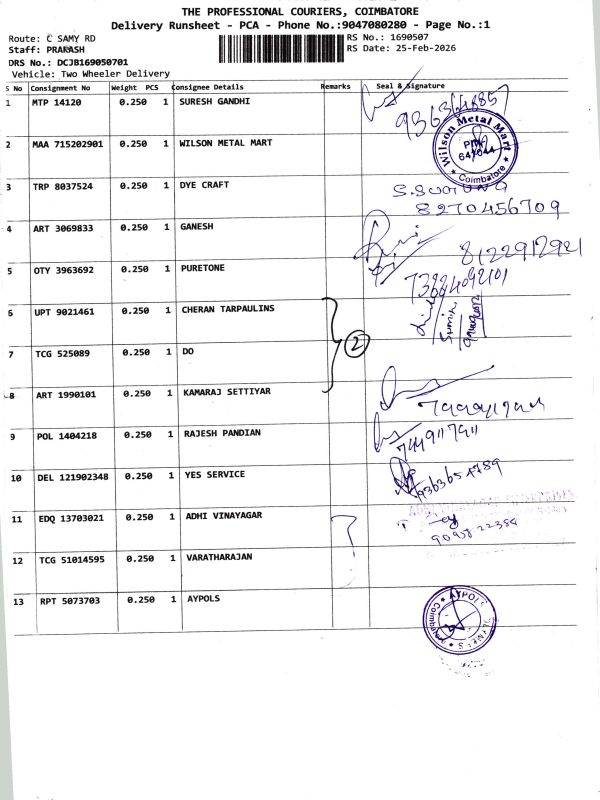 THE PROFESSIONAL COURIERS, COIMBATORE
Delivery Runsheet - PCA - Phone No.:9047080280 - Page No.:1
Route: C SAMY RD
RS No.: 1690507
Staff: PRAKASH
RS Date: 25-Feb-2026
DRS No.: DCJB169050701
Vehicle: Two Wheeler Delivery
S No Consignment No Weight PCS Consignee Details Remarks Seal & Signature
1 MTP 14120 0.250 1 SURESH GANDHI
2 MAA 715202901 0.250 1 WILSON METAL MART
Wilson Metal Mart
PIN
Coimbatore
3 TRP 8037524 0.250 1 DYE CRAFT
8270456709
4 ART 3069833 0.250 1 GANESH
8122912921
5 OTY 3963692 0.250 1 PURETONE
6 UPT 9021461 0.250 1 CHERAN TARPAULINS
2
7 TCG 525089 0.250 1 DO
8 ART 1990101 0.250 1 KAMARAJ SETTIYAR
9 POL 1404218 0.250 1 RAJESH PANDIAN
10 DEL 121902348 0.250 1 YES SERVICE
11 EDQ 13703021 0.250 1 ADHI VINAYAGAR
12 TCG 51014595 0.250 1 VARATHARAJAN
13 RPT 5073703 0.250 1 AYPOLS
AYPOLS